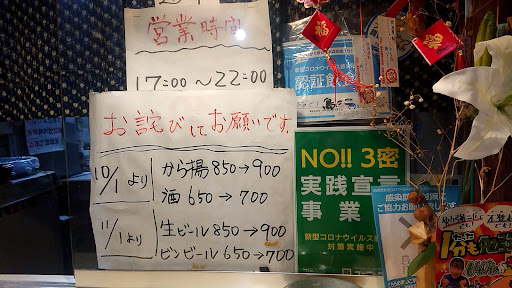 営業時間
17:00〜22:00
お詫びしてお願いです.
10/1より
から揚 850→900
酒 650→700
11/1より
生ビール 850→900
ビンビール 650→700
福
福
新型コロナウイルス感染
認証飲食
NO!! 3密
実践宣言
事業
新型コロナウイルス
対策実施中
感染防
ご協力お
1分も